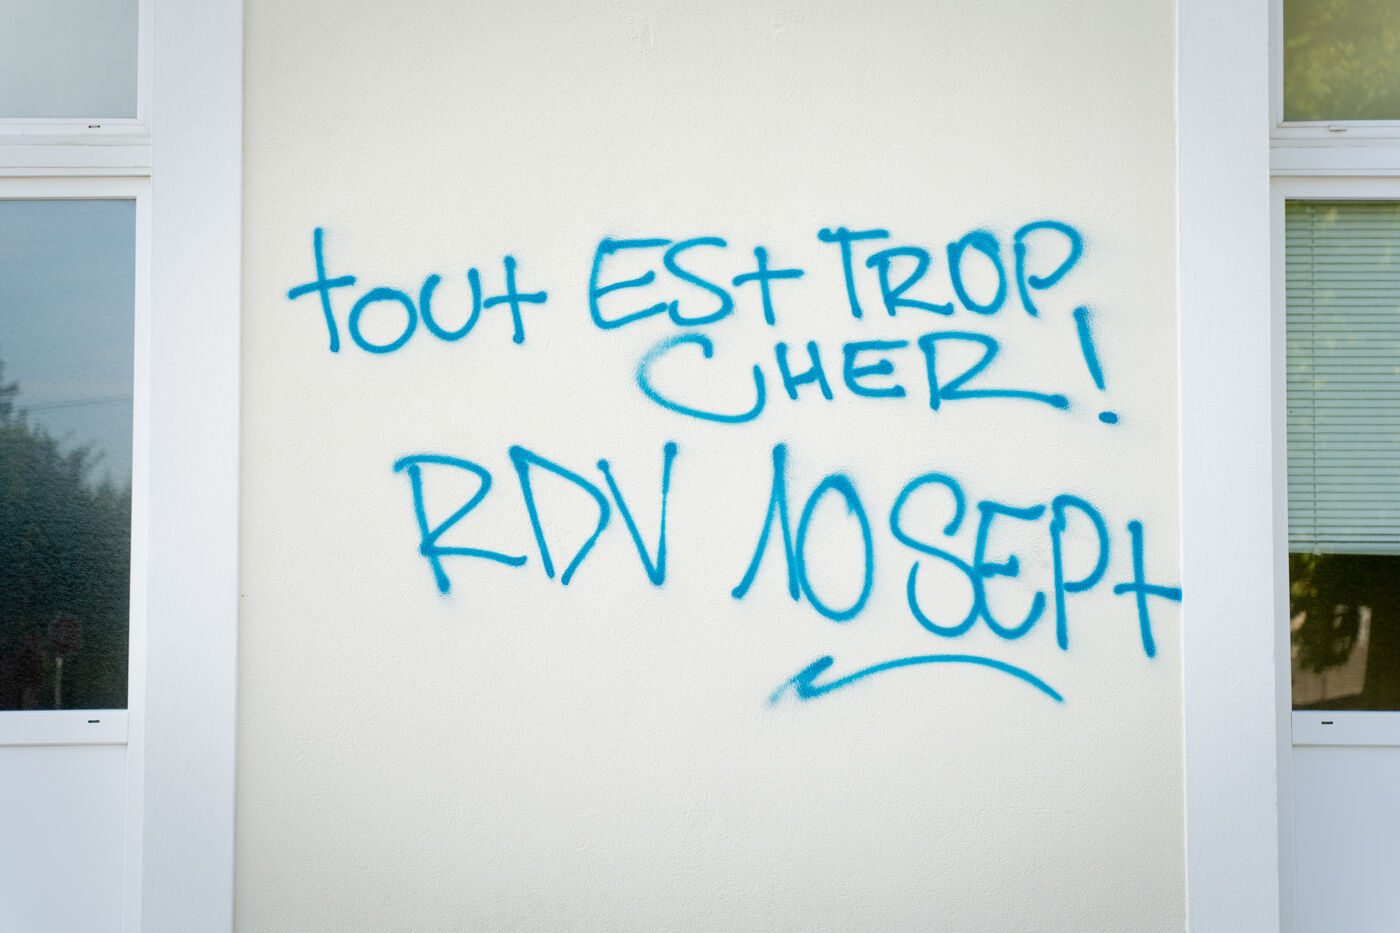 tout EST TROP
CHER!
RDV 10 SEPt